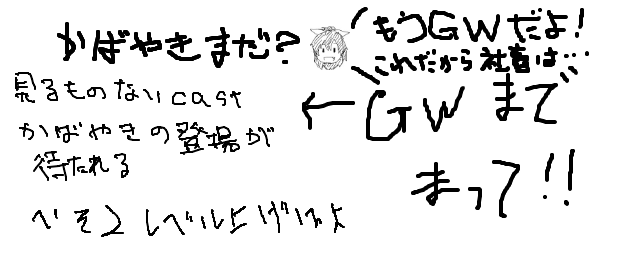 かばやきまだ?
もうGWだよ!
これだから社畜は…
見るものないcast
かばやきの登場が
待たれる
← GWまで
まって!!
レベル上げいくよ